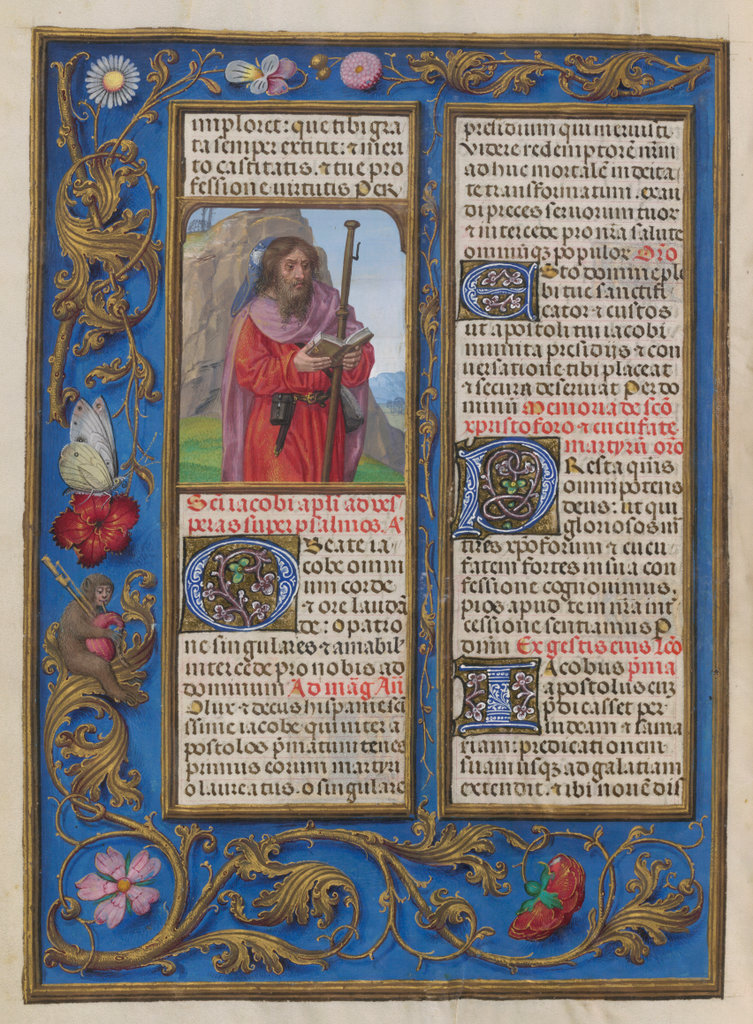 imploret: que tibi gra
ta semper extitit: & meri
to castitatis. & tue pro
fessione uirtutis Per
Scī iacobi apłi ad ves
peras super psalmos. Ā
O Beate ia
cobe omni
um corde
& ore laudā
de: o patro
ne singulares & amabil'
intercede pro nobis ad
dominum Ad māg Añ
O lux & decus hispanie sc
issime iacobe qui inter a
postolos p̄matum tenes
primus eorum martyri
o laureatus. o singulare
presidium qui meruisti
videre redemptorē nr̄m
ad huc mortalē in deita
te transformatum. exau
di preces seruorum tuor
& intercede pro nr̄a salute
omniumqz populor Oro
Esto domine ple
bi tue sanctifi
cator & custos
ut apostoli tui iacobi
munita presidijs & con
uersatione tibi placeat
& secura deseruiat Per do
minū Memoria de scō
xp̄ustoforo & cucufate
martyrū orō
Presta quīs
omnipotens
deus: ut qui
gloriosos m̄
tires xp̄oforum & cucu
fatem fortes in sua con
fessione cognouimus,
pios apud te in nr̄a int
cessione sentiamus P
dīm Ex gestis eius Lc̄o
Iacobus p̄ma
apostolus cuz
p̄dicasset per
iudeam & sama
riam: predicationem
suam usqz ad galatiam
extendit. & ibi nouē dis